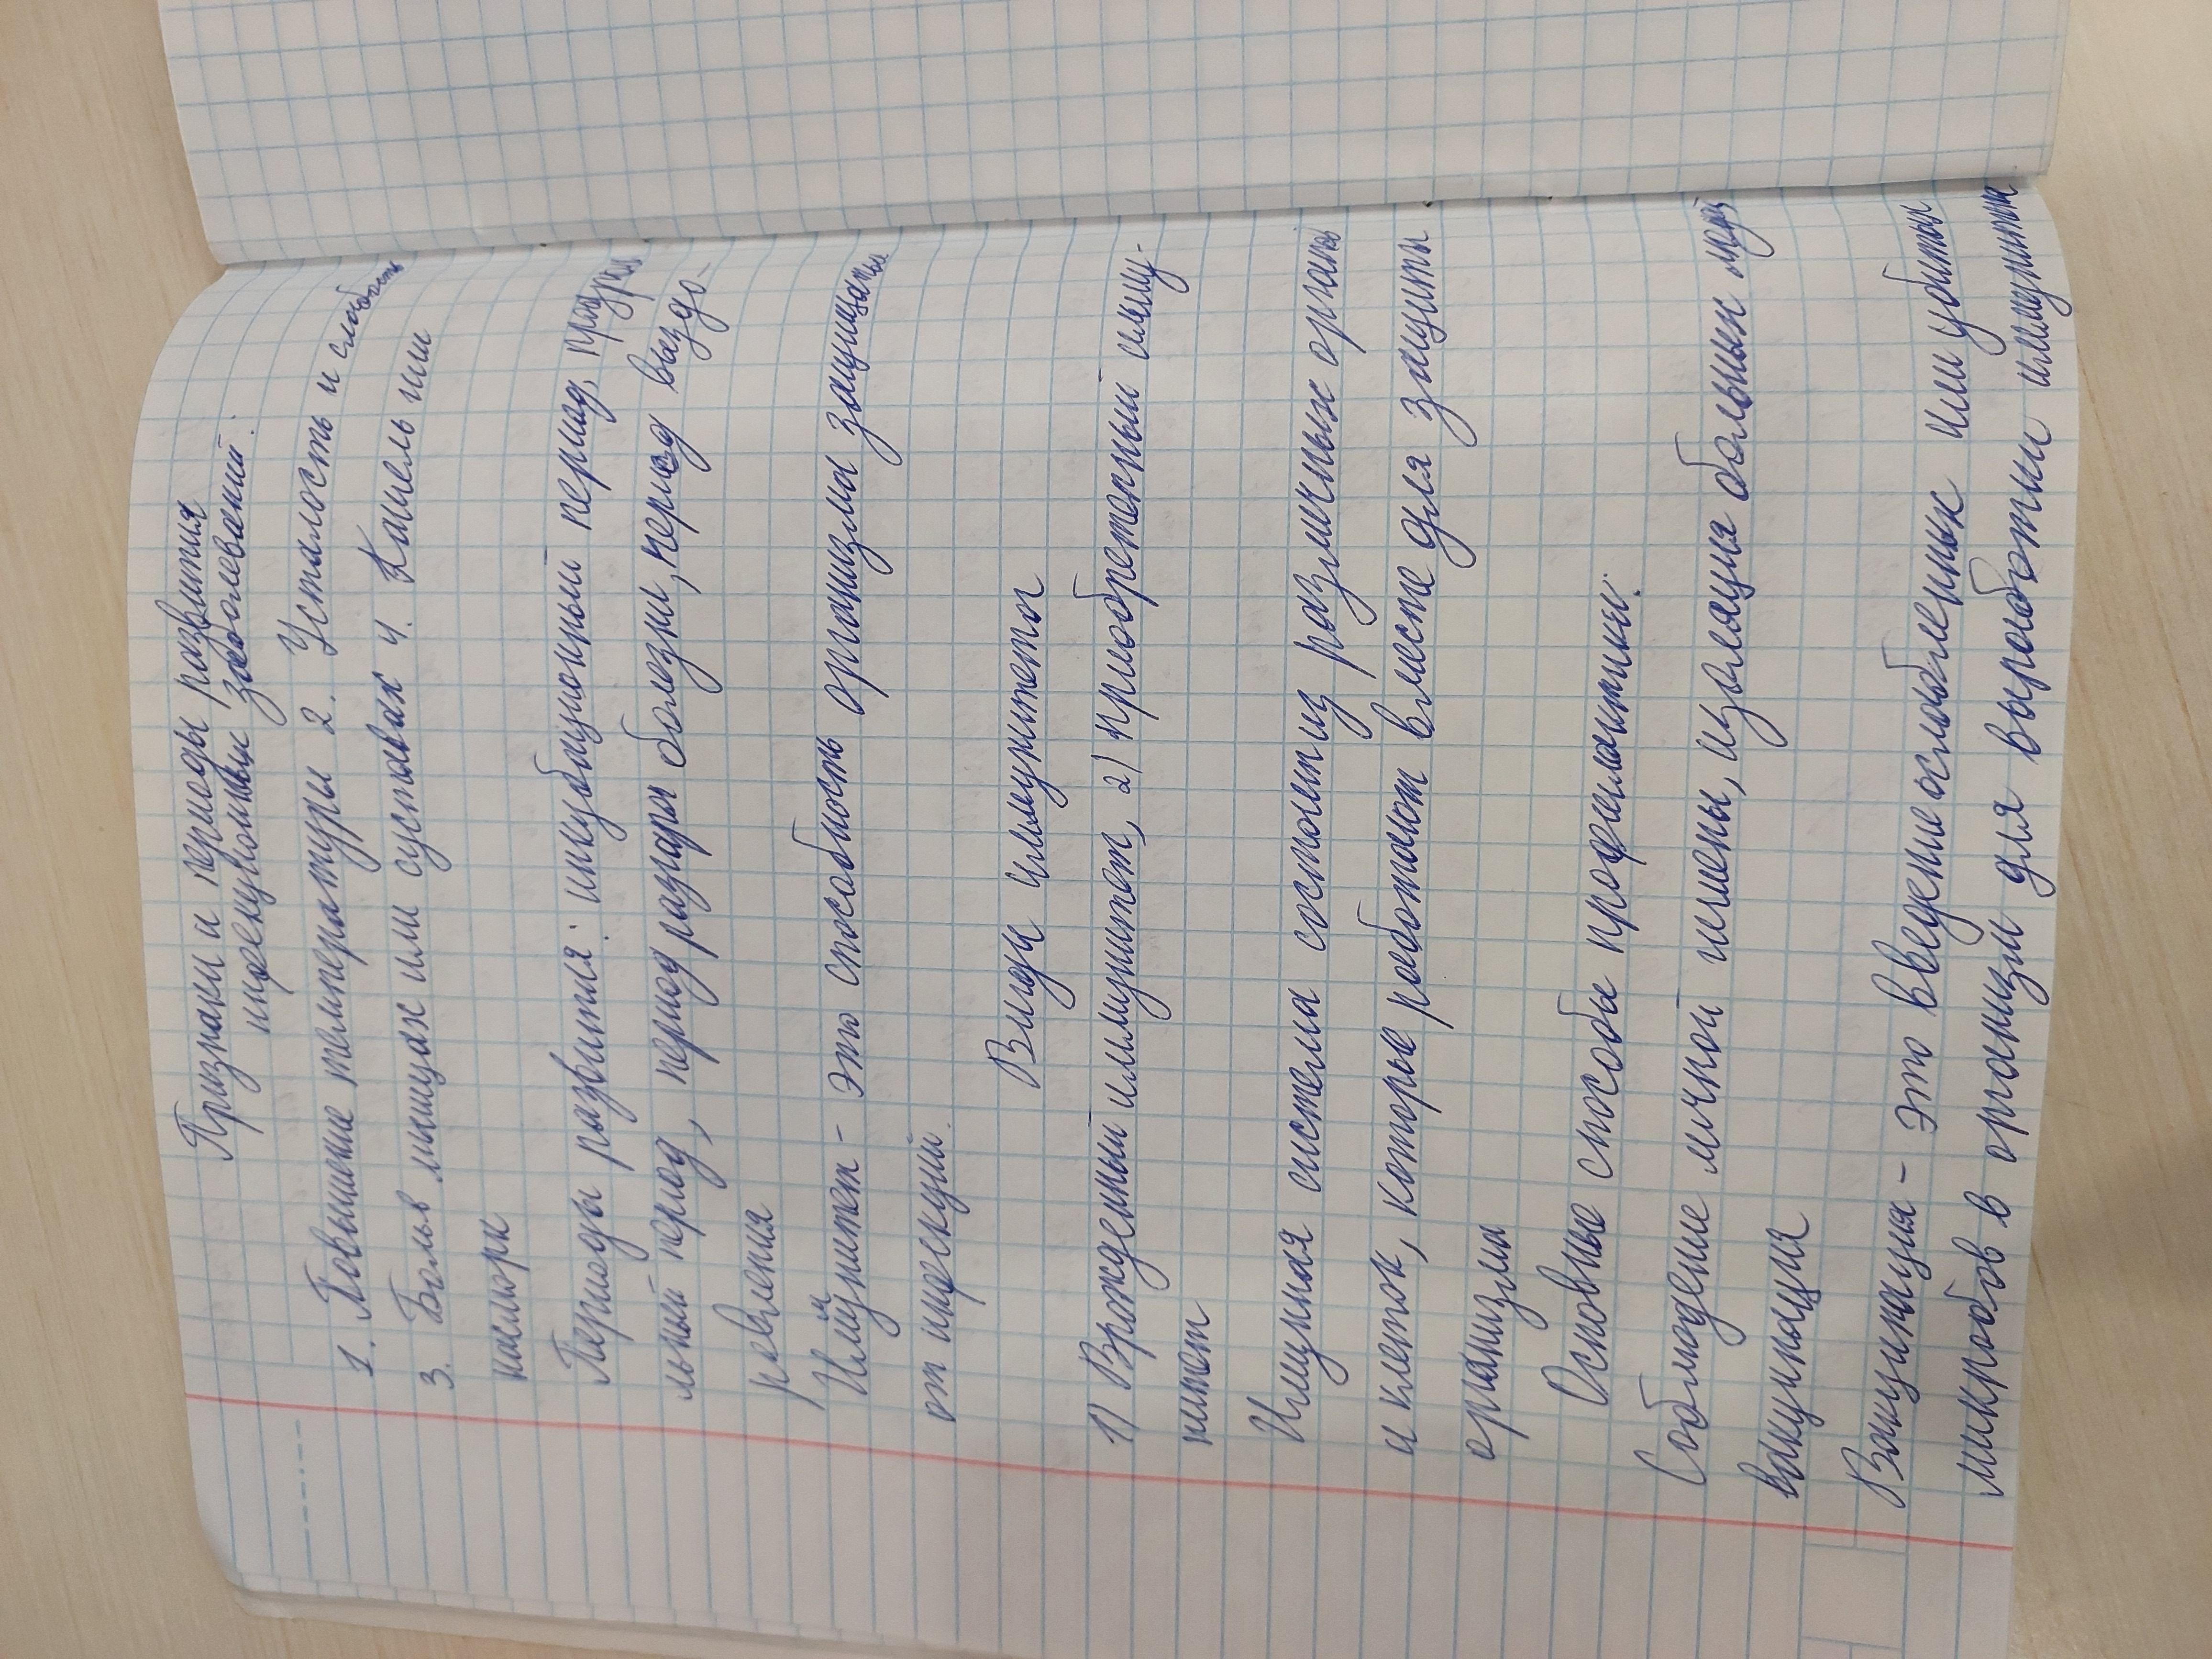 Признаки и периоды развития
инфекционных заболеваний:
1. Повышение температуры 2. Усталость и слабость
3. Боль в мышцах или суставах 4. Кашель или
насморк
Периоды развития: инкубационный период, продро
льный период, период разгара болезни, период выздо-
ровления
Иммунитет - это способность организма защищаться
от инфекции.
Виды иммунитета
1) Врожденный иммунитет, 2) приобретенный имму-
нитет
Имунная система состоит из различных органы
и клеток, которые работают вместе для защиты
организма
Основные способы профилактики:
Соблюдение личной гигиены, изоляция больных люде
вакцинация
Вакцинация - это введение ослабленных или убиты
микробов в организм для выработки иммунитета